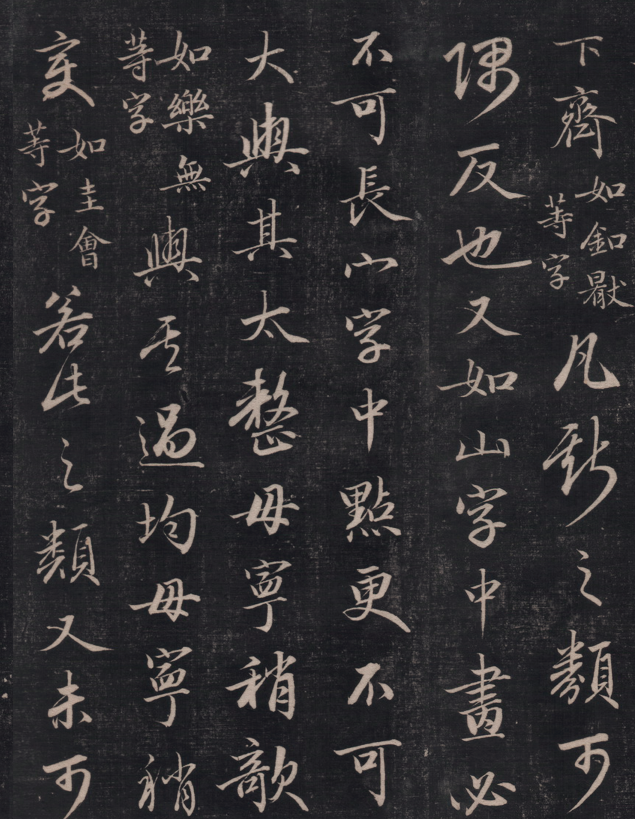 下齊如釦等字凡斯之類可
隅反也又如山字中畫必
不可長心字中點更不可
大與其太整毋寧稍欹
如樂無等字與其過均毋寧稍
變如圭會等字若此之類又未可